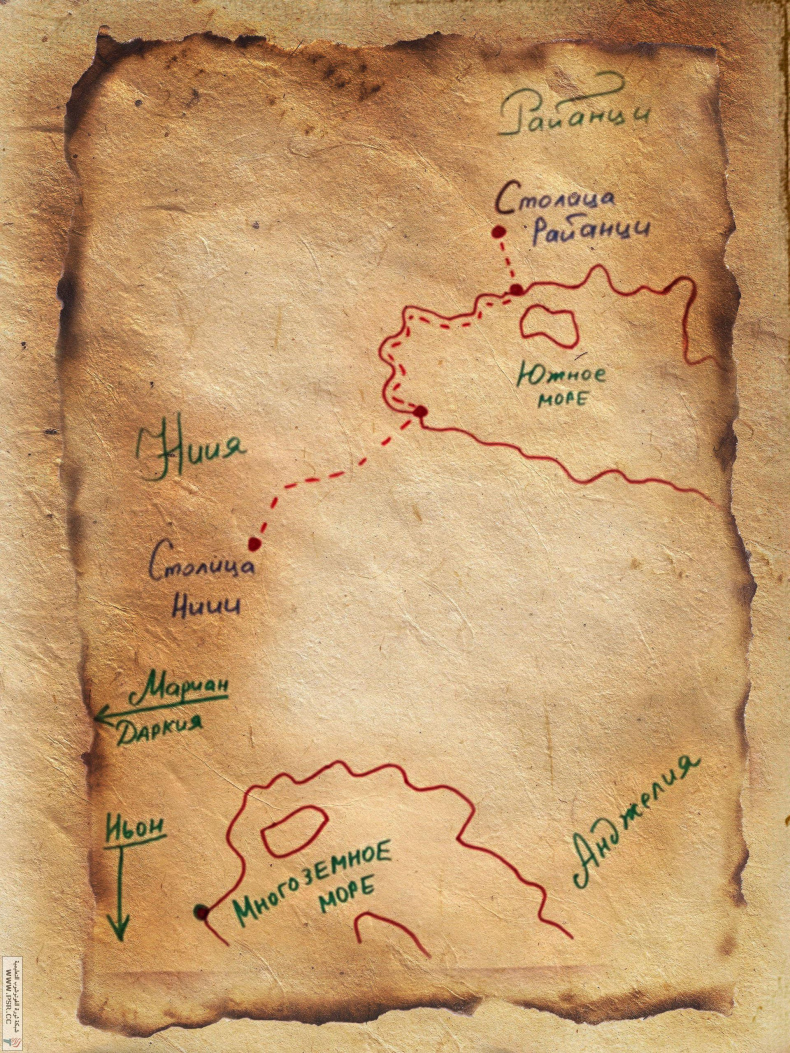 Райанци
Столица
Райанци
Южное
МОРЕ
Ниия
Столица
Ниии
Мариан
ДАРКИЯ
Ньон
Анджелия
МНОГОЗЕМНОЕ
МОРЕ
WWW.PSR.CC